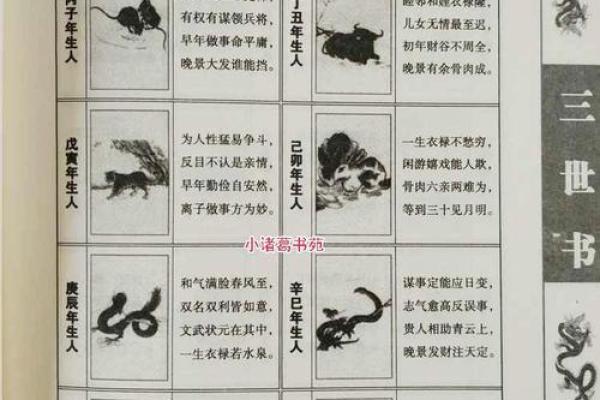 丙子年生人
有权有谋领兵将,
早年做事命平庸,
晚景大发谁能挡。
丁丑年生人
儿女无情最至迟,
初年财谷不周全,
晚景有余骨肉成。
戊寅年生人
为人性猛易争斗,
反目不认是亲情,
早年勤俭自安然,
离子做事方为妙。
己卯年生人
一生衣禄不愁穷,
闲游嬉戏能人欺,
骨肉六亲两难为,
等到三十见月明。
小诸葛书苑
庚辰年生人
和气满脸春风至,
双名双利皆如意,
文武状元在其中,
一生衣禄若水泉。
辛巳年生人
谋事定能应日变,
志气愈高反误事,
贵人相助青云上,
晚景发财注天定。
三世书